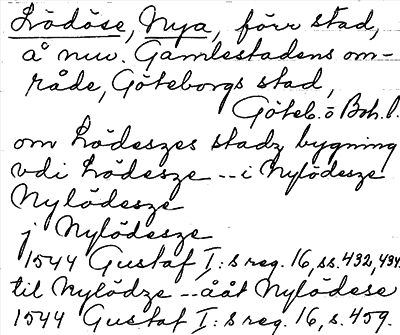 Lödöse, Nya, förr stad,
å nuv. Gamlestadens om-
råde, Göteborgs stad,
Göteb. o Boh. l.
om Lödeszes stadz bygning
vdi Lödesze -- i Nylödesze
Nylödesze
j Nylödesze
1544 Gustaf I:s reg. 16, ss. 432, 434.
til Nylödze -- ååt Nylödese
1544 Gustaf I:s reg. 16, s. 459.